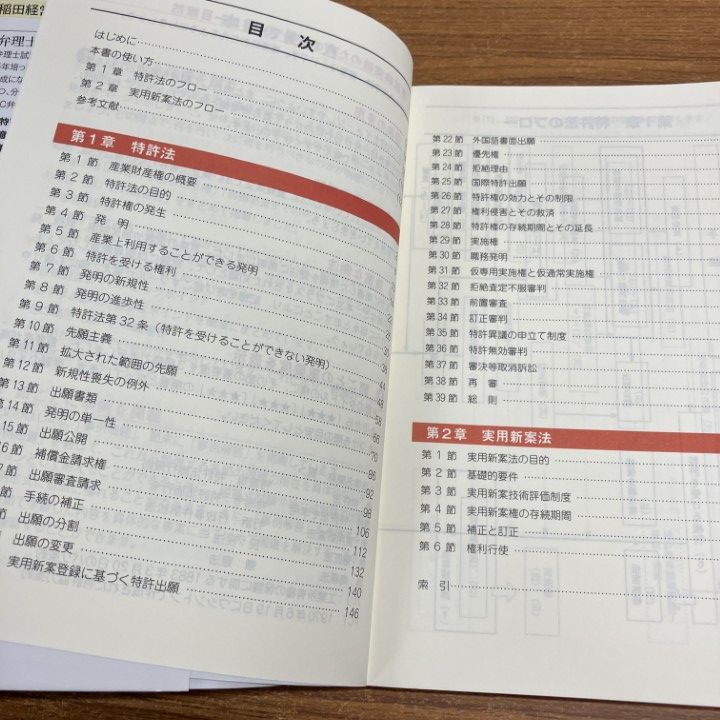 稲田経営
弁理士
目 次
はじめに
本書の使い方
第1章 特許法のフロー
第2章 実用新案法のフロー
参考文献
第1章 特許法
第1節 産業財産権の概要
第2節 特許法の目的
第3節 特許権の発生
第4節 発 明
第5節 産業上利用することができる発明
第6節 特許を受ける権利
第7節 発明の新規性
第8節 発明の進歩性
第9節 特許法第32条（特許を受けることができない発明）
第10節 先願主義
第11節 拡大された範囲の先願 44
第12節 新規性喪失の例外 48
第13節 出願書類 58
第14節 発明の単一性 66
15節 出願公開 70
16節 補償金請求権 86
7節 出願審査請求 92
節 手続の補正 98
節 出願の分割 106
節 出願の変更 112
132
実用新案登録に基づく特許出願 140
146
第22節 外国語書面出願
第23節 優先権
第24節 拒絶理由
第25節 国際特許出願
第26節 特許権の効力とその制限
第27節 権利侵害とその救済
第28節 特許権の存続期間とその延長
第29節 実施権
第30節 職務発明
第31節 仮専用実施権と仮通常実施権
第32節 拒絶査定不服審判
第33節 前置審査
第34節 訂正審判
第35節 特許異議の申立て制度
第36節 特許無効審判
第37節 審決等取消訴訟
第38節 再 審
第39節 総 則
第2章 実用新案法
第1節 実用新案法の目的
第2節 基礎的要件
第3節 実用新案技術評価制度
第4節 実用新案権の存続期間
第5節 補正と訂正
第6節 権利行使
索 引